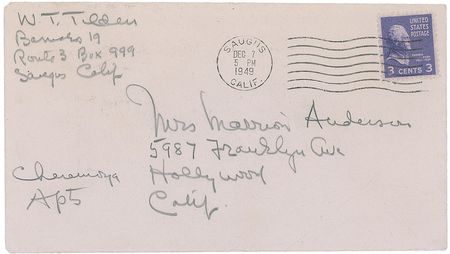 W. T. Tilden
Barracks 19
Route 3 Box 999
Saugus Calif
SAUGUS
DEC 7
5 PM
1949
CALIF.
UNITED
STATES
POSTAGE
3 CENTS 3
Mrs Marrion Anderson
5987 Franklyn Ave
Hollywood
Calif.
Cheremoya
Apts